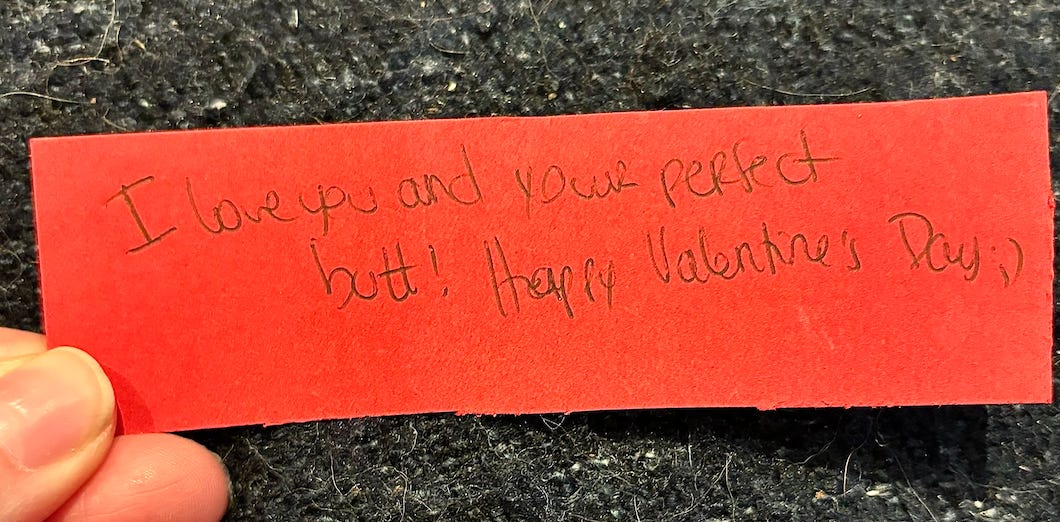 I love you and your perfect
butt! Happy Valentine's Day ;)